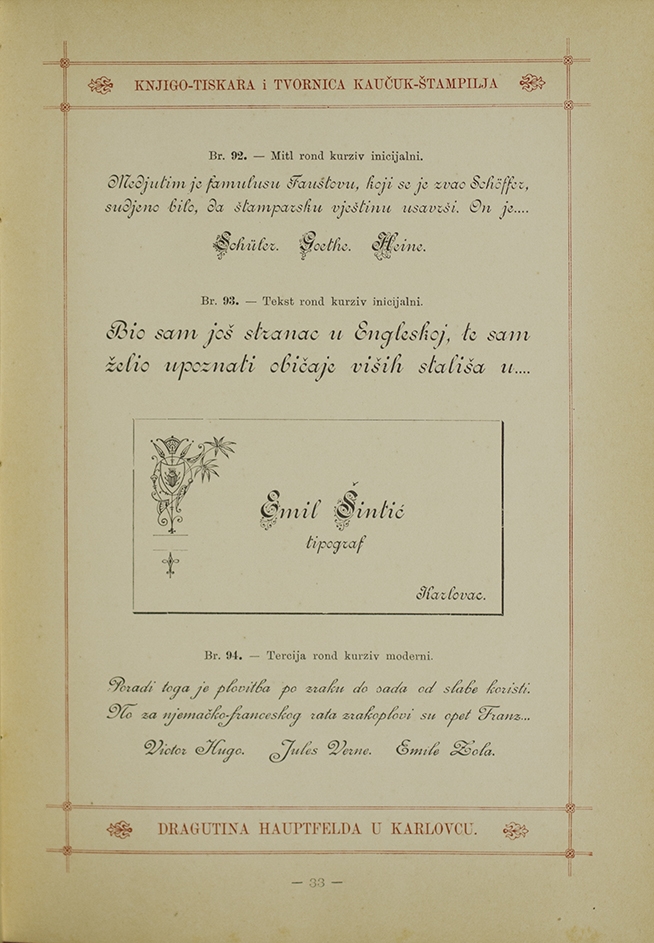 KNJIGO-TISKARA i TVORNICA KAUČUK-ŠTAMPILJA
Br. 92. — Mitl rond kurziv inicijalni.
Medjutim je famulusu Fauštovu, koji se je zvao Schöffer,
sudjeno bilo, da štamparsku vještinu usavrši. On je....
Schüler. Goethe. Heine.
Br. 93. — Tekst rond kurziv inicijalni.
Bio sam još stranac u Engleskoj, te sam
želio upoznati običaje viših stališa u....
Emil Šintić
tipograf
Karlovac.
Br. 94. — Tercija rond kurziv moderni.
Poradi toga je plovitba po zraku do sada od slabe koristi.
No za njemačko-franceskog rata zrakoplovi su opet Franz...
Victor Hugo. Jules Verne. Emile Zola.
DRAGUTINA HAUPTFELDA U KARLOVCU.
— 33 —